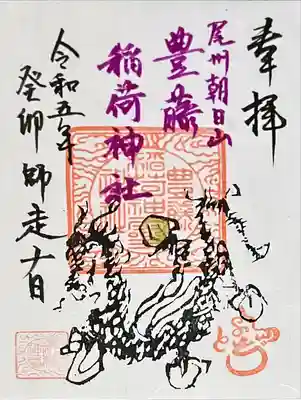 奉拝
尾州朝日山
豊藤
稲荷神社
令和五年
癸卯 師走十日